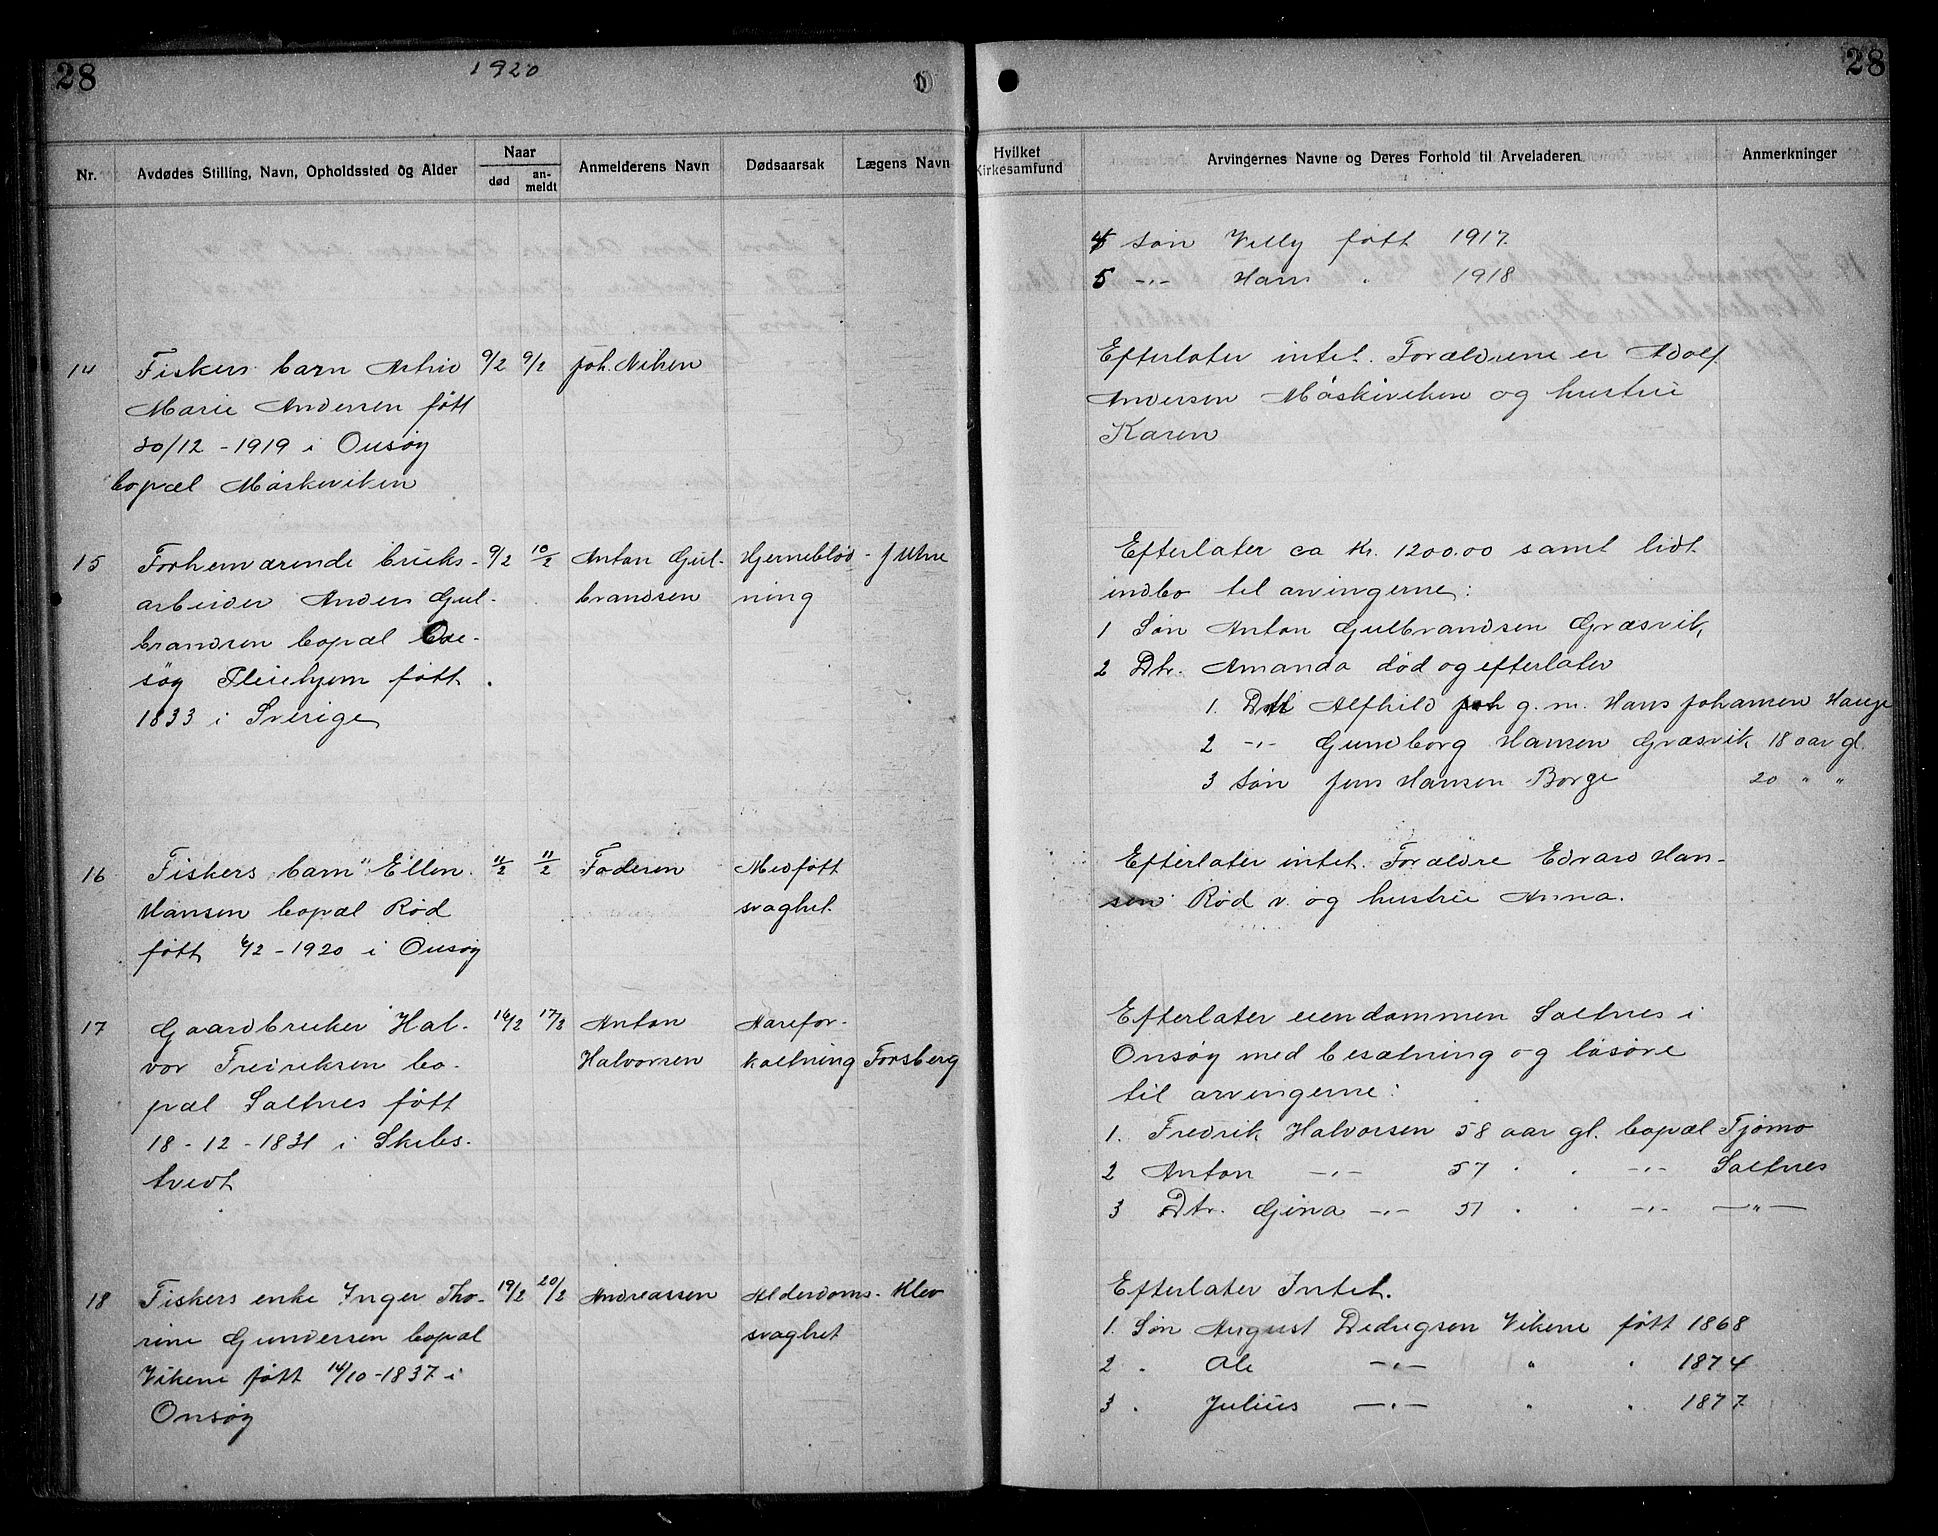 28
1920
28
Nr.
Avdødes Stilling, Navn, Opholdssted og Alder
Naar
død
an-
meldt
Anmelderens Navn
Dødsaarsak
Lægens Navn
Hvilket
Kirkesamfund
Arvingernes Navne og Deres Forhold til Arveladeren
Anmerkninger
4 Søn Villy født 1917.
5 -"- Hans " 1918
14
Fiskers barn Astrid
Marie Andersen født
30/12 - 1919 i Onsøy
bopæl Måskeviken
9/2 9/2
Joh. Nilsen
Efterlater intet. Forældrene er Adolf
Andersen Måskeviken og hustru
Karen
15
Forhenværende bruks-
arbeider Anders Gul-
brandsen bopæl On-
søy Pleiehjem født
1833 i Sverige
9/2 10/2
Anton Gul-
brandsen
Hjerneblød-
ning
J Utne
Efterlater ca Kr. 1200.00 samt lidt
indbo til arvingerne:
1 Søn Anton Gulbrandsen Græsvik
2 Dtr. Amanda død og efterlater
1. Dtr Alfhild g.m. Hans Johansen Hauge
2 -"- Gundborg Hansen Græsvik 18 aar gl.
3 Søn Jens Hansen Borge 20 " "
16
Fiskers barn Ellen
Hansen bopæl Rød
født 6/2 - 1920 i Onsøy
11/2 11/2
Faderen
Medfødt
svaghet.
Efterlater intet. Forældre Edvard Han-
sen Rød v. og hustru Anna.
17
Gaardbruker Hal-
vor Fredriksen bo-
pæl Saltnes født
18 - 12 - 1831 i Skibs-
tvedt
16/2 17/2
Anton
Halvorsen
Aarefor-
kalkning
Forsberg
Efterlater eiendommen Saltnes i
Onsøy med besætning og løsøre
til arvingerne:
1. Fredrik Halvorsen 58 aar gl. bopæl Tjømø
2 Anton -"- 57 " " -"- Saltnes
3 Dtr. Gina -"- 51 " " -"- -"-
18
Fiskers enke Inger Tho-
rine Gundersen bopæl
Vikene født 14/10 - 1837 i
Onsøy
19/2 20/2
Andreassen
Alderdoms-
svaghet
Klev
Efterlater Intet.
1. Søn August Didrigsen Vikene født 1868
2 " Ole -"- " " 1874
3 " Julius -"- " " 1877